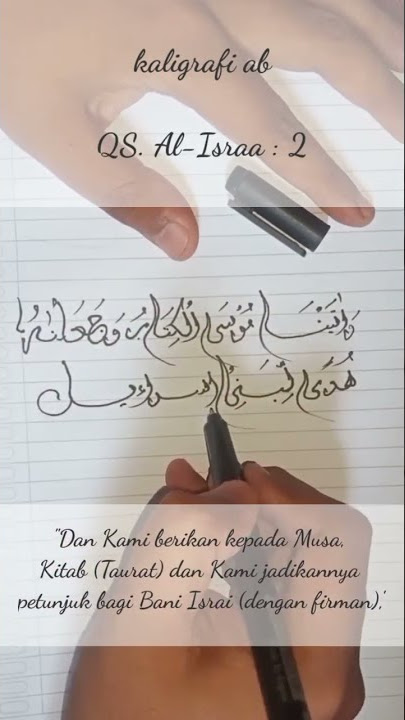 kaligrafi ab
QS. Al-Israa : 2
وَاٰتَيْنَا مُوْسَى الْكِتٰبَ وَجَعَلْنٰهُ
هُدًى لِّبَنِيْٓ اِسْرَاۤءِيْل
"Dan Kami berikan kepada Musa,
Kitab (Taurat) dan Kami jadikannya
petunjuk bagi Bani Israi (dengan firman),'